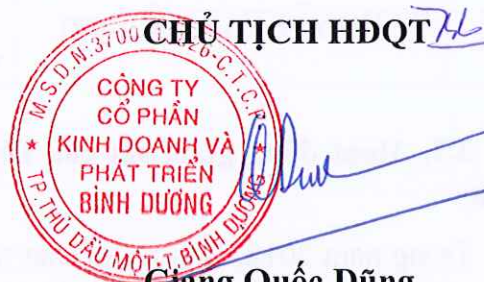 CHỦ TỊCH HĐQT
CÔNG TY
CỔ PHẦN
KINH DOANH VÀ
PHÁT TRIỂN
BÌNH DƯƠNG
TP.THỦ DẦU MỘT-T.BÌNH DƯƠNG
Giang Quốc Dũng